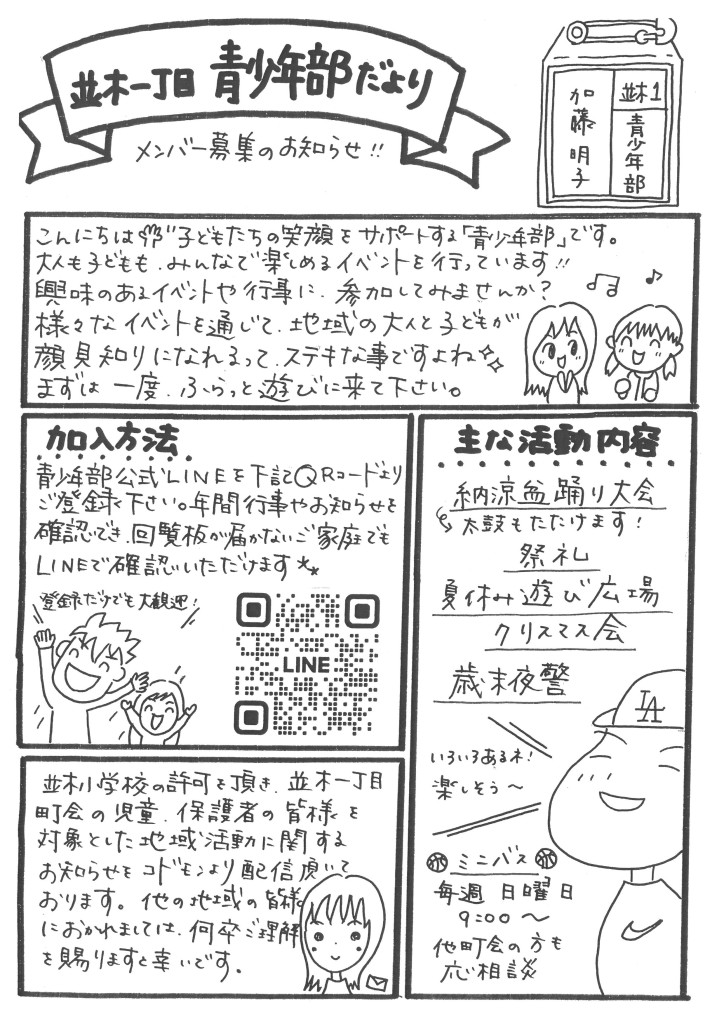 並木一丁目 青少年部だより
メンバー募集のお知らせ!!
並木1
青少年部
加藤明子
こんにちは 子どもたちの笑顔をサポートする「青少年部」です。
大人も子どもも、みんなで楽しめるイベントを行っています!!
興味のあるイベントや行事に、参加してみませんか?
様々なイベントを通じて、地域の大人と子どもが
顔見知りになれるって、ステキな事ですよね
まずは一度、ふらっと遊びに来て下さい。
加入方法
青少年部公式LINEを下記QRコードより
ご登録下さい。年間行事やお知らせを
確認でき、回覧板が届かないご家庭でも
LINEで確認いただけます
登録だけでも大歓迎!
LINE
並木小学校の許可を頂き、並木一丁目
町会の児童、保護者の皆様を
対象とした地域活動に関する
お知らせをコドモンより配信頂いて
おります。他の地域の皆様
におかれましては、何卒ご理解
を賜りますと幸いです。
主な活動内容
納涼盆踊り大会
太鼓もたたけます!
祭礼
夏休み遊び広場
クリスマス会
歳末夜警
LA
いろいろあるネ!
楽しそう〜
ミニバス
毎週 日曜日
9:00〜
他町会の方も
応相談